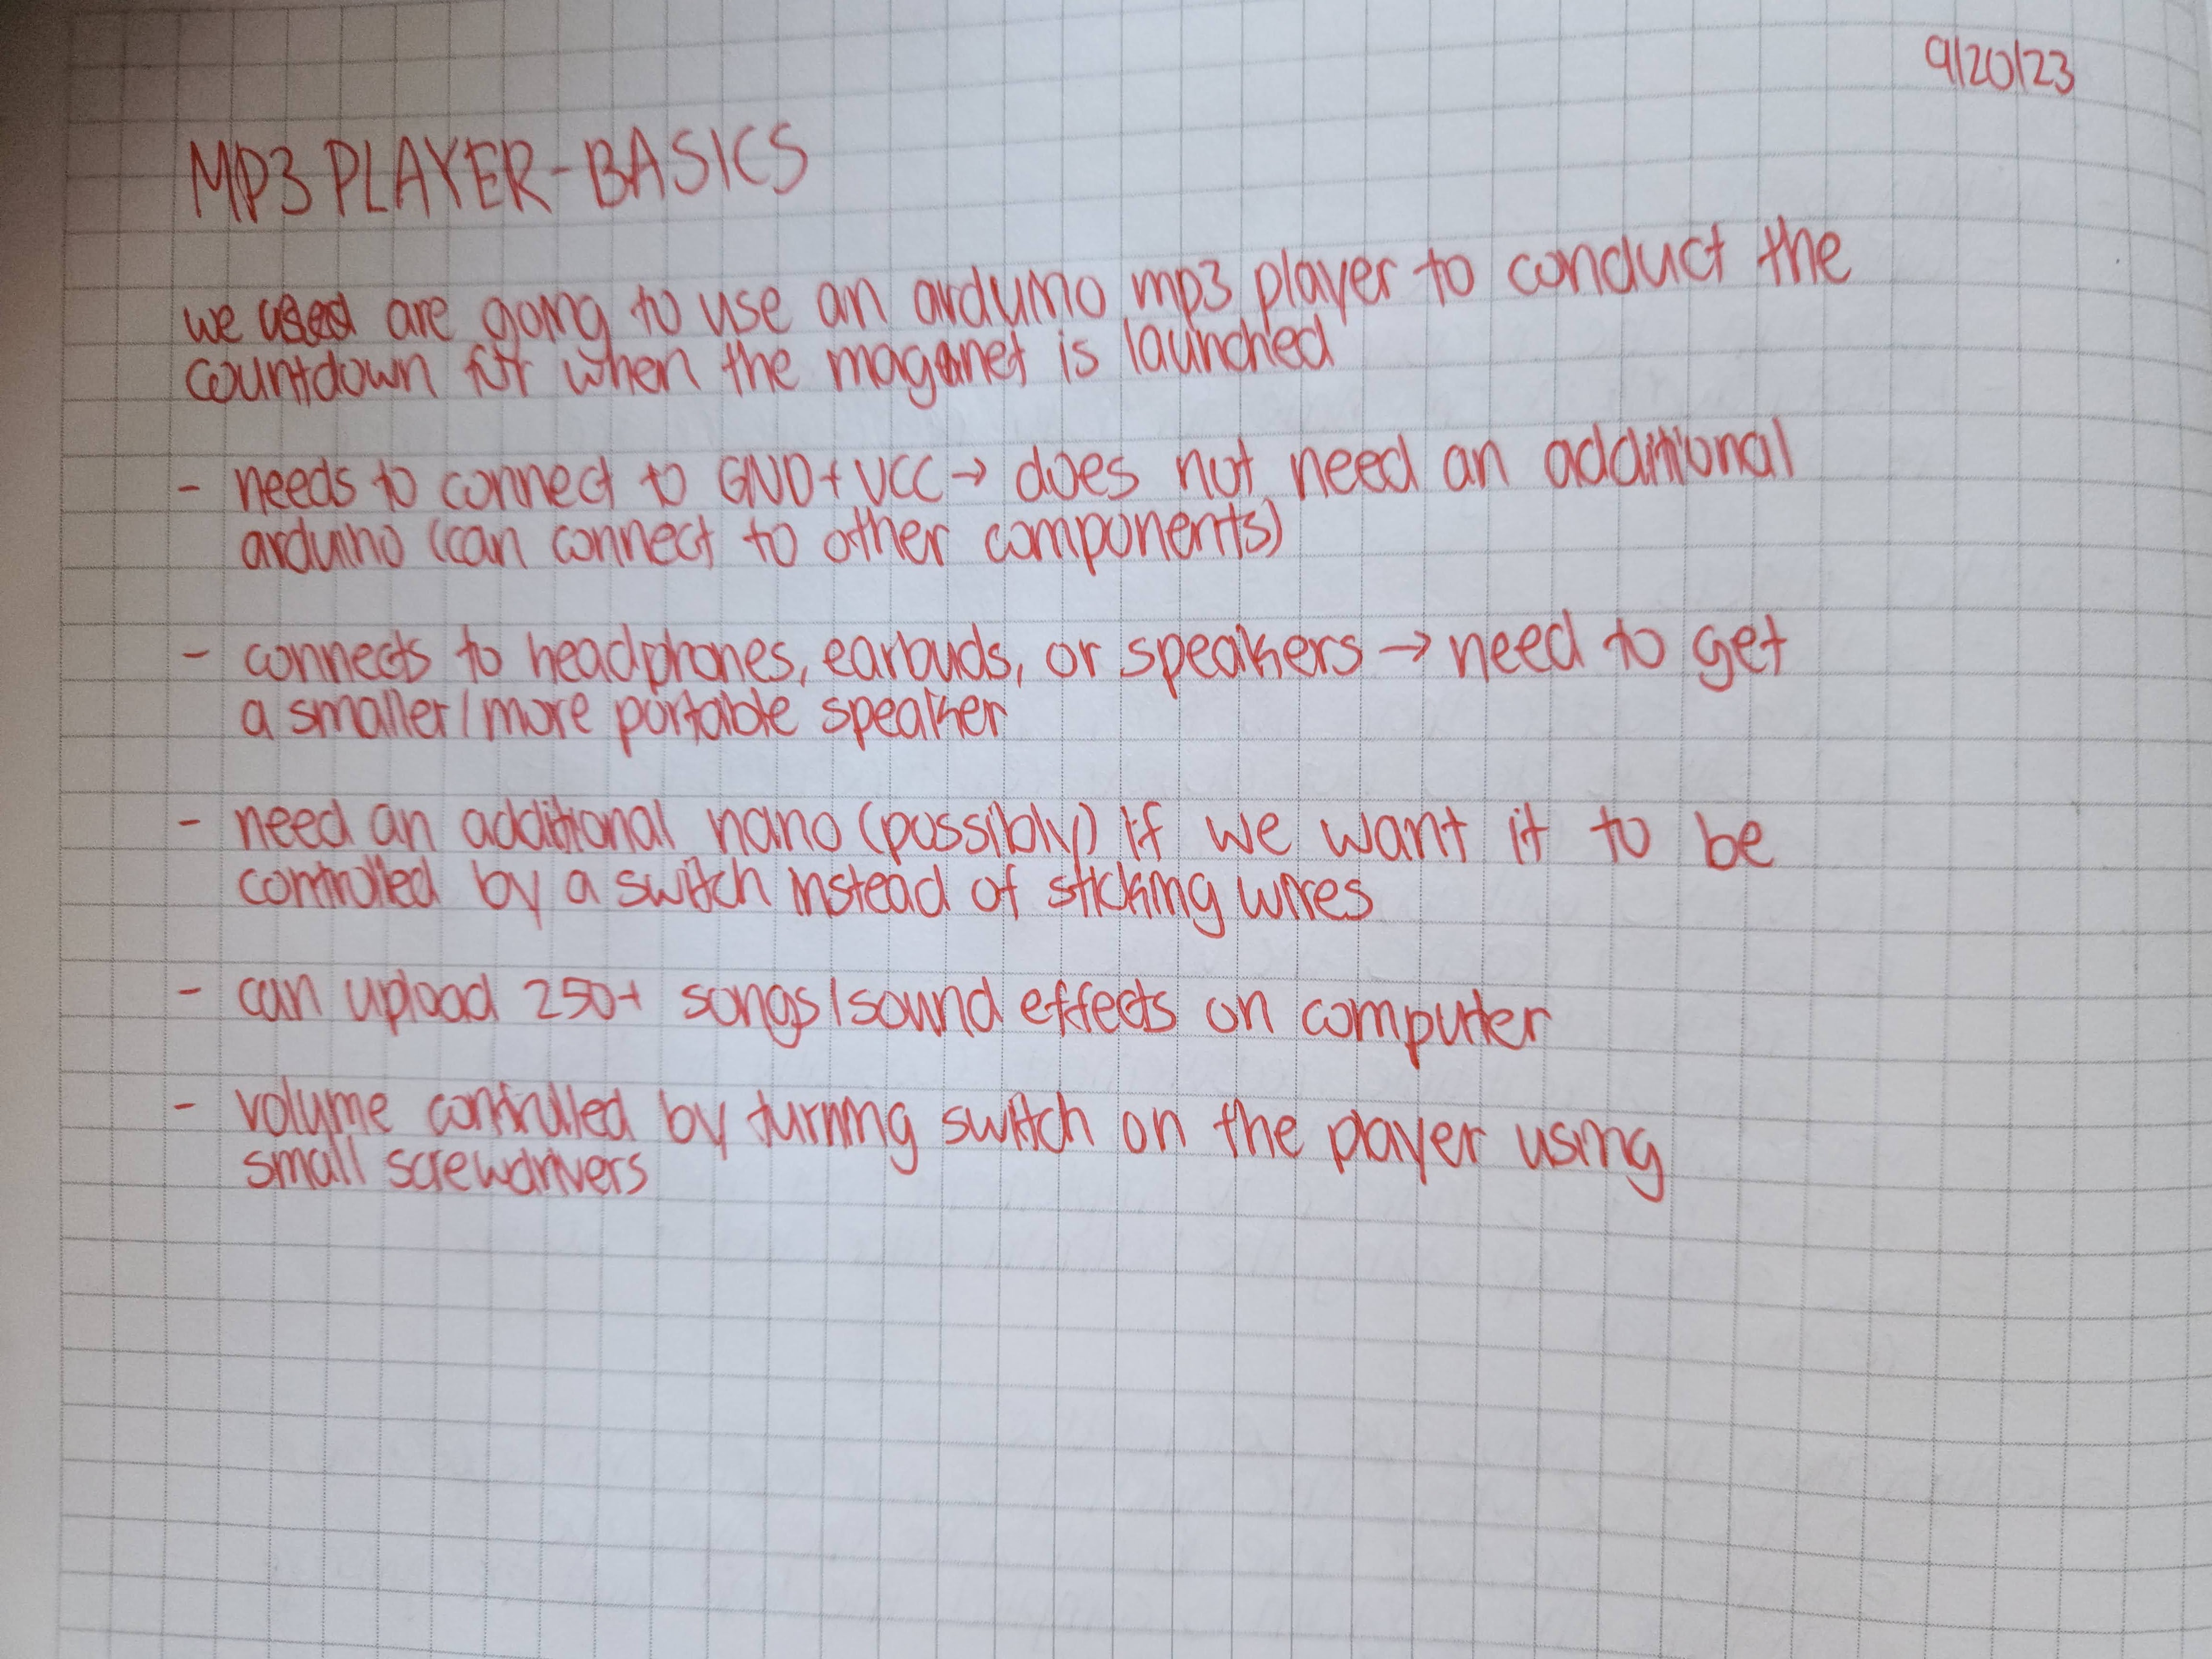 9/20/23
MP3 PLAYER-BASICS
we used are going to use an arduino mp3 player to conduct the
countdown for when the maganet is launched
- needs to connect to GND+VCC → does not need an additional
arduino (can connect to other components)
- connects to headphones, earbuds, or speakers → need to get
a smaller/more portable speaker
- need an additional nano (possibly) if we want it to be
controlled by a switch instead of sticking wires
- can upload 250+ songs/sound effects on computer
- volume controlled by turning switch on the player using
small screwdrivers